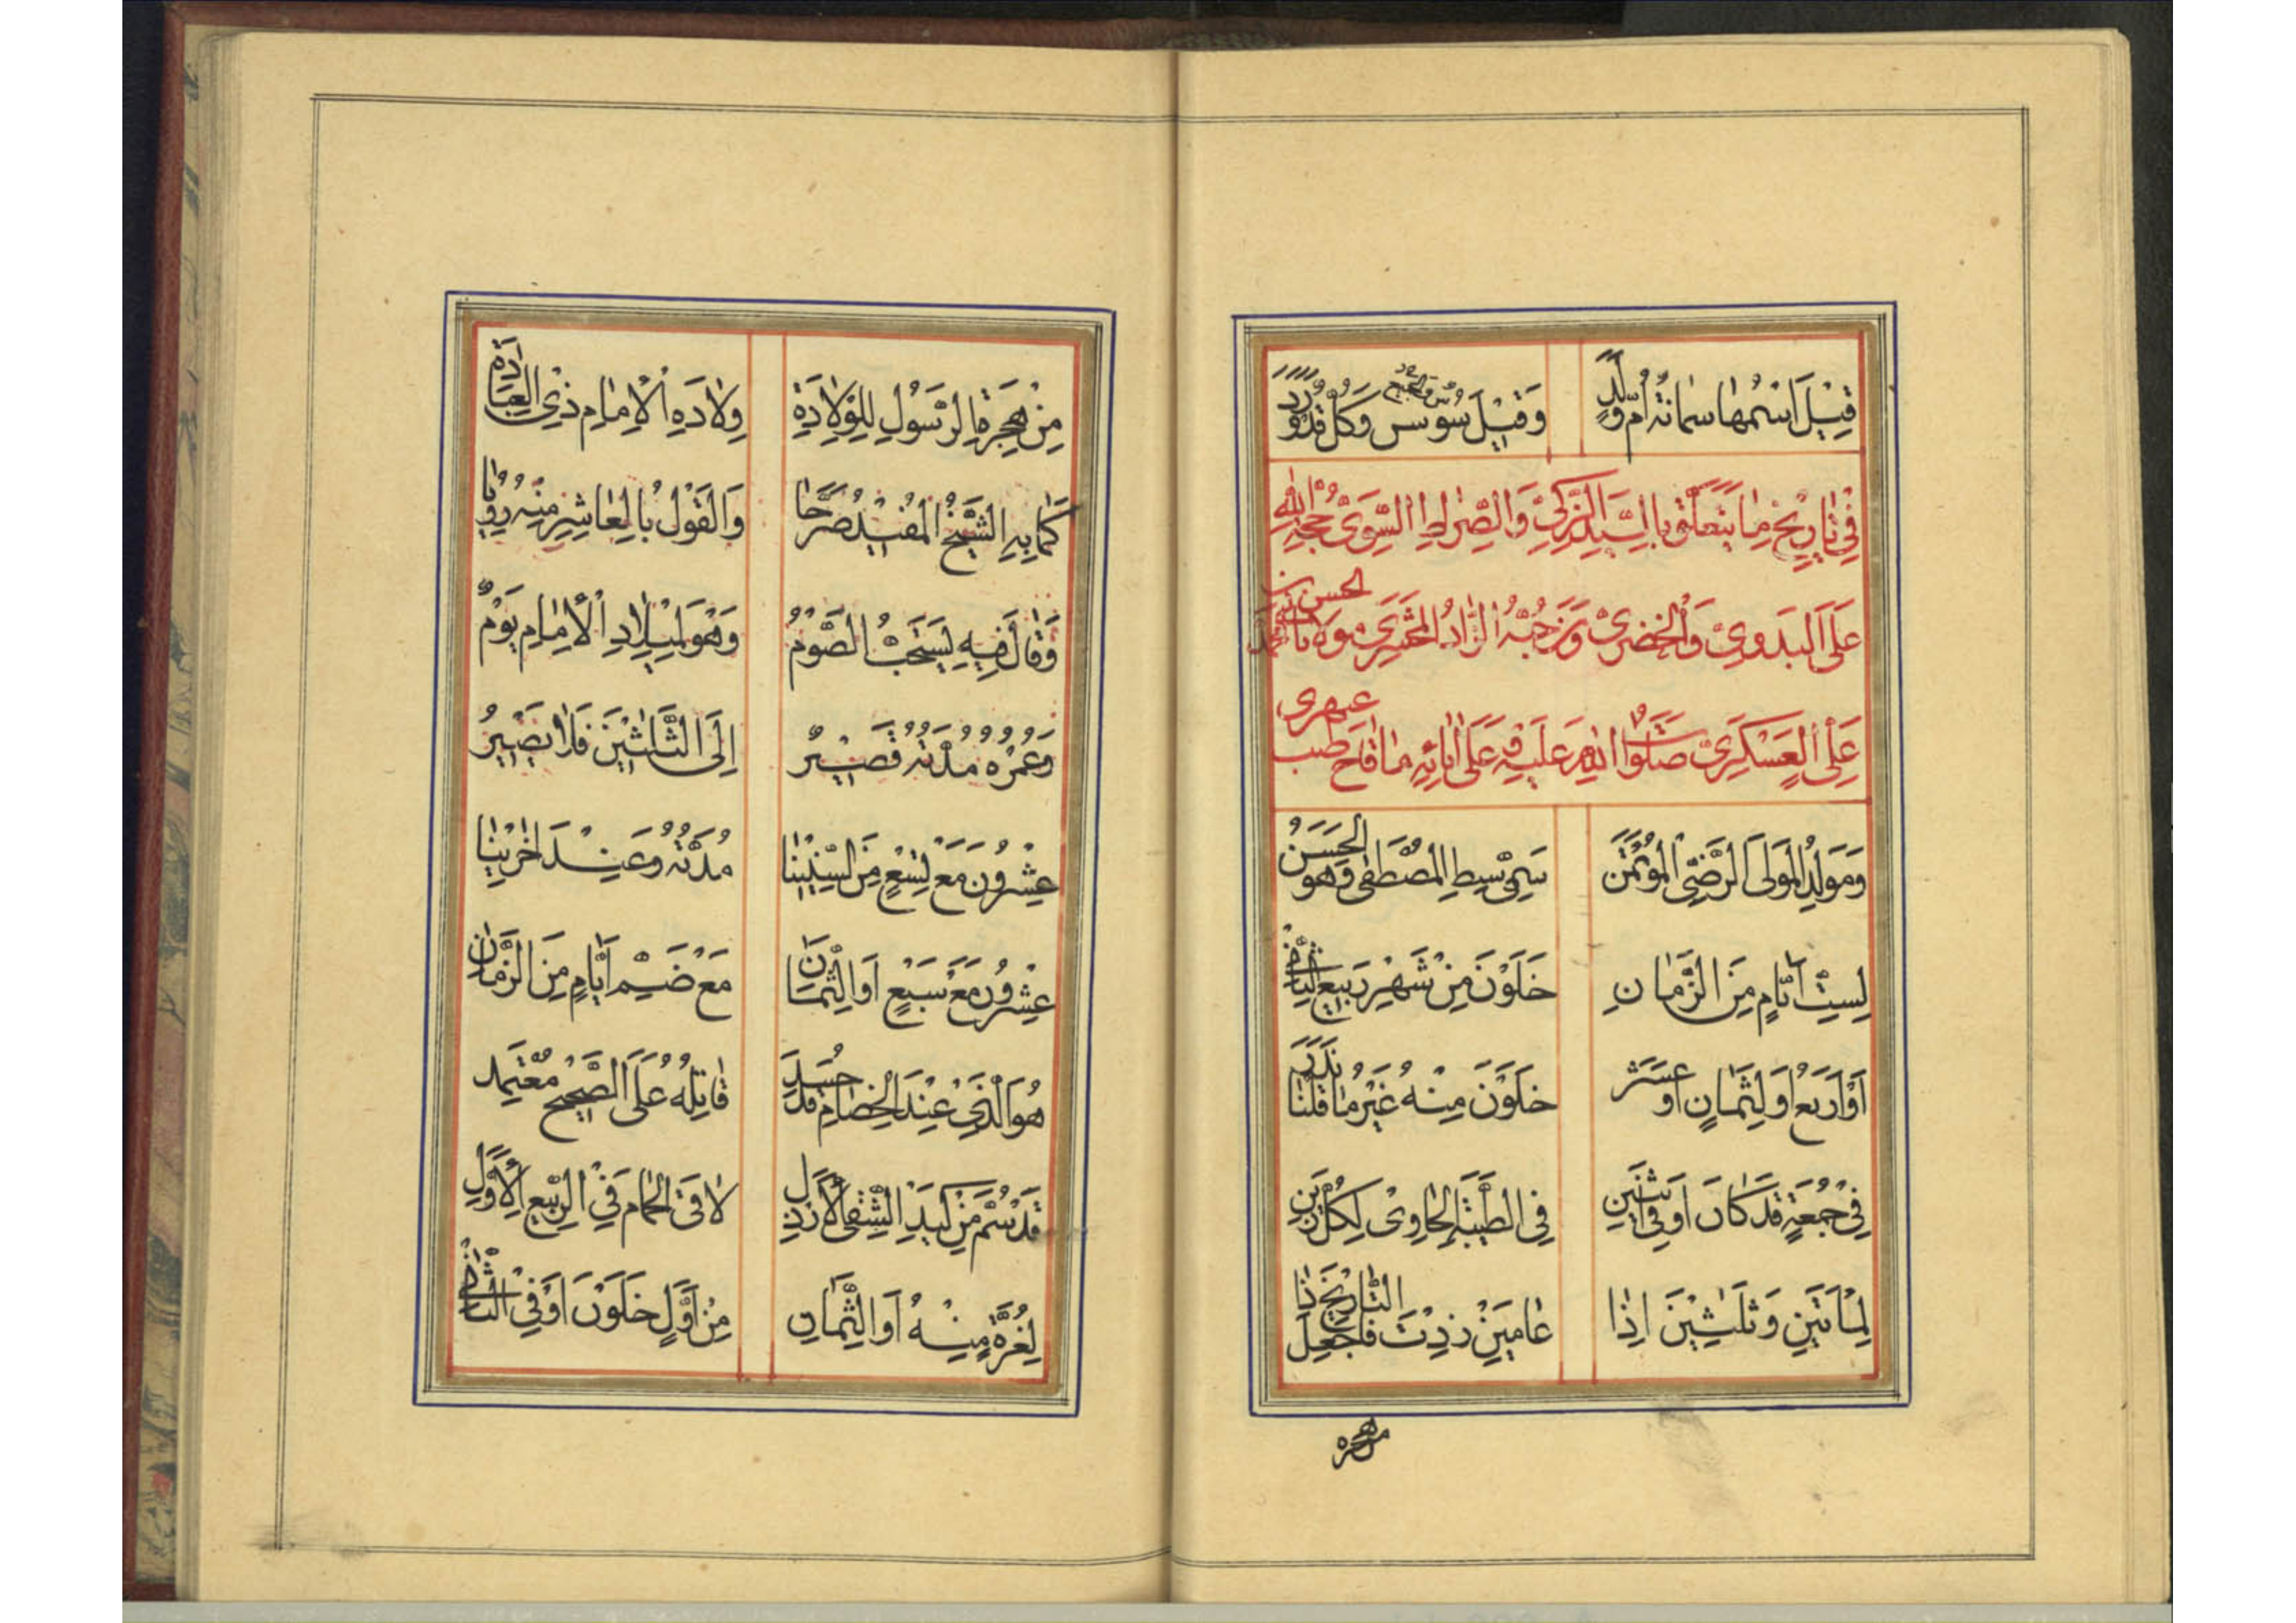 قِيْلَ اسْمُها سمانةُ اُمُّ وَلَدٍ وَقيْلَ سُوْسن وَكُلٌّ قَدْ وَرَدَ
فِيْ تَاريْخِ مٰا يَتَعَلَّقُ بِالسَّيِّدِ الزَّكِيِّ وَالصِّرٰاطِ السَّوِيِّ حُجَّةِ اللهِ
عَلَى البَدَوِيّ وَالْحَضَرِيّ وَمَنْ حُبُّهُ الزّادُ لِلْمَحْشَرِ مَوْلانا الحسن بن
عَلِيٍّ العَسْكَرِيّ صَلَوٰاتُ اللهِ عَلَيْهِ وَعَلىٰ اٰبائِهِ مٰا فٰاحَ طيب عبهرى
وَمَوْلِدُ المَوْلَى الرَّضِيِّ المُؤْتَمَن سَمِيِّ سِبْطِ المُصْطَفىٰ وَهْوَ الحَسَنُ
لِسِتِّ اَيّٰامٍ مِنَ الزَّمٰانِ خَلَوْنَ مِنْ شَهْرِ رَبيْعِ الثّٰانِيْ
اَوْ اَرْبَعٍ اَوْ لِثَمٰانٍ اَوْ عَشَرْ خَلَوْنَ مِنْهُ غَيْرُ مٰا قُلْنٰا نَدَرَ
فِيْ جُمْعَةٍ قَدْ كٰانَ اَوْ فِي اثْنَيْنِ فِي الطَّيْبَةِ الحٰاوِيْ لِكُلِّ زَيْنِ
لِمِأَتَيْنِ وَثَلٰثِيْنَ اِذٰا عٰامَيْنِ زِدْتَ فَاجْعَلِ التّٰاريْخَ ذٰا
من هجره
مِنْ هِجْرَةِ الرَّسُوْلِ لِلْوِلاٰدَةِ وِلاٰدَةِ الْاِمٰامِ ذِي العِبٰادَةِ
كَمٰا بِهِ الشَّيْخُ المُفيْدُ صَرَّحٰا وَالقَوْلُ بِالعٰاشِرِ مِنْهُ
وَقٰالَ فيْهِ يُسْتَحَبُّ الصَّوْمُ وَهْوَ لِميْلاٰدِ الْاِمٰامِ يَوْمٌ
وَعُمْرُهُ مُدَّتُهُ قَصيْرٌ اِلَى الثَّلٰثِيْنَ فَلاٰ يَصيْرُ
عِشْرُوْنَ مَعْ تِسْعٍ مِنَ السِّنيْنٰا مُدَّتُهُ وَعِنْدَ اٰخَرِيْنٰا
عِشْرُوْنَ مَعْ سَبْعٍ اَوِ الثَّمٰانَ مَعْ ضَمِّ اَيّٰامٍ مِنَ الزَّمٰانِ
هُوَ الَّذِيْ عِنْدَ الخِصٰامِ قَدْ حُسِدَ قٰاتِلُهُ عَلَى الصَّحيْحِ مُعْتَمِد
قَدْ سُمَّ مِنْ كَيْدِ الشَّقِيِّ الْاَرْذَلِ لاٰقَى الحِمٰامَ فِي الرَّبيْعِ الْاَوَّلِ
لِغُرَّةٍ مِنْهُ اَوِ الثَّمٰانِ مِنْ اَوَّلٍ خَلَوْنَ اَوْ فِي الثّٰانِيْ